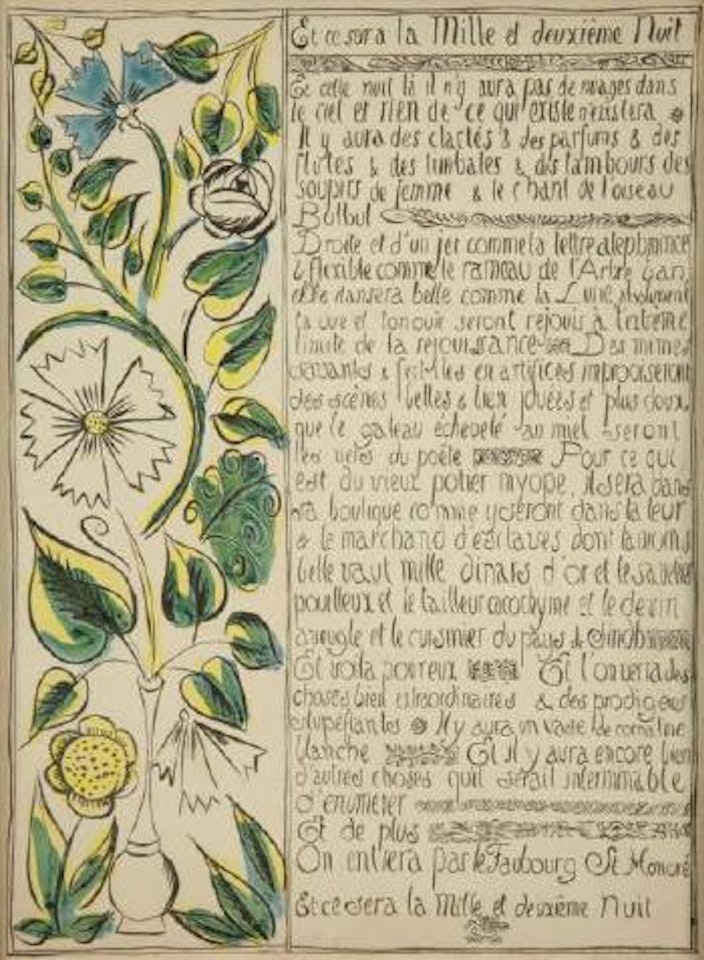 Et ce sera la Mille et deuxième Nuit
Et cette nuit là il n'y aura pas de nuages dans
le ciel et rien de ce qui existe n'existera
Il y aura des clartés & des parfums & des
flûtes & des timbales & des tambours des
soupirs de femme & le chant de l'oiseau
Bulbul
Droite et d'un jet comme la lettre aleph mince
& flexible comme le rameau de l'Arbre ban,
elle dansera belle comme la Lune, absolument
la vue et l'onouie seront rejouis à l'extrême
limite de la rejouissance Des mimes
savantes & subtiles en artifices improviseront
des scènes belles & bien jouées et plus doux
que le gateau echevelé au miel seront
les vers du poète Pour ce qui
est du vieux potier myope, il sera dans
sa boutique comme y seront dans la leur
& le marchand d'esclaves dont la moins
belle vaut mille dinars d'or et le savetier
pouilleux et le tailleur cacochyme et le devin
aveugle et le cuisinier du pays de
Et voilà pour eux Et l'on verra des
choses bien extraordinaires & des prodiges
stupéfiantes Il y aura un vase de cornaline
blanche Et il y aura encore bien
d'autres choses qu'il serait interminable
d'enumérer
Et de plus
On entrera par le Faubourg St Honoré
Et ce sera la Mille et deuxième Nuit